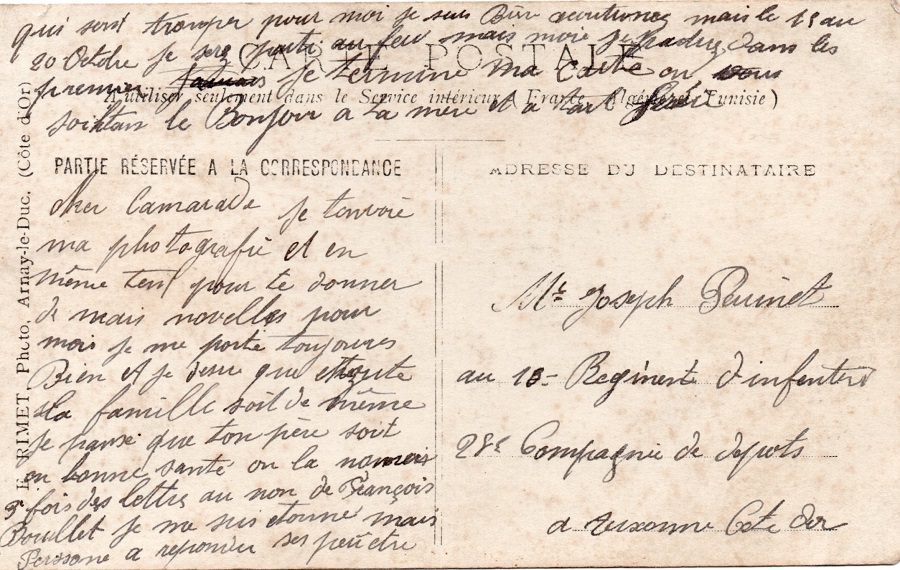 qui sera tromper pour moi je suis Bien mais le 15 au
20 Octbre je sera parti au feu mais more dans les
premier jamais je termine ma Carte en vous
soiktan le Bonjour a ta mère et a
CARTE POSTALE
A utiliser seulement dans le Service intérieur (France, Algérie et Tunisie)
PARTIE RÉSERVÉE A LA CORRESPONDANCE
cher Camarade je tenvoie
ma photografie et en
même tens pour te donner
de mais novelles pour
mois je me porte toujoures
Bien et je desire que toute
la famille soit de même
je panse que ton pere soit
en bonne santé on la nomers
3 fois des lettres au non de François
Bouillet je me suis etonné mais
Perssone a reponder ses peuêtre
ADRESSE DU DESTINATAIRE
Mr Joseph Peuinet
au 10 Regiment d'infenterie
28e Compagnie de depots
a auxonne Cote dor
E. RIMET, Photo, Arnay-le-Duc, (Côte d'Or)